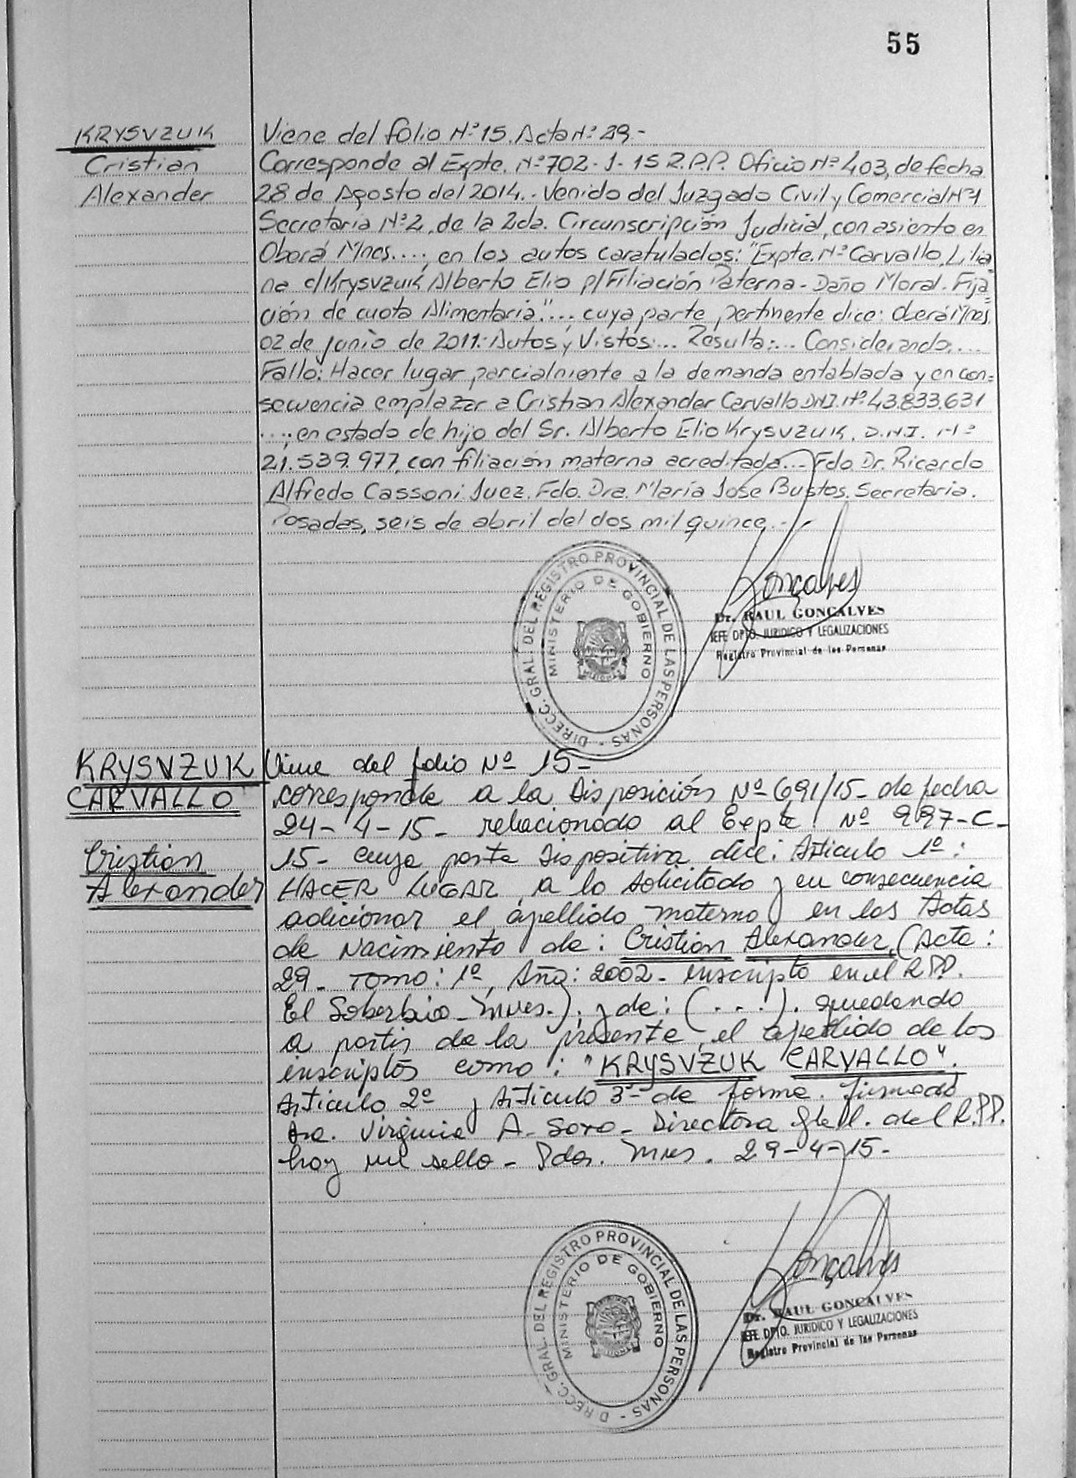 55
KRYSVZUK
Cristian
Alexander
Viene del folio Nº 15. Acta Nº 29.-
Corresponde al Expte. Nº 702-J-15 R.P.P. Oficio Nº 403, de fecha
28 de Agosto del 2014.- Venido del Juzgado Civil y Comercial Nº 1
Secretaria Nº 2, de la 2da. Circunscripción Judicial, con asiento en
Oberá Mnes...., en los autos caratulados: "Expte. Nº Carvallo, Lilia
na c/ Krysvzuk Alberto Elio p/ Filiación Paterna - Daño Moral. Fija
ción de cuota Alimentaria"... cuya parte pertinente dice: Oberá Mnes,
02 de junio de 2011: Autos y Vistos:... Resulta:... Considerando:...
Fallo: Hacer lugar parcialmente a la demanda entablada y en con-
secuencia emplazar a Cristian Alexander Carvallo DNI. Nº 43.833.631
...; en estado de hijo del Sr. Alberto Elio Krysvzuk. D.N.I. Nº
21.539.977, con filiación materna acreditada... Fdo Dr. Ricardo
Alfredo Cassoni Juez. Fdo. Dra. María Jose Bustos. Secretaria.
Posadas, seis de abril del dos mil quince.-
DIRECC. GRAL. DEL REGISTRO PROVINCIAL DE LAS PERSONAS -
MINISTERIO DE GOBIERNO
Gonçalves
Dr. RAUL GONÇALVES
JEFE DPTO. JURIDICO Y LEGALIZACIONES
Registro Provincial de las Personas
KRYSVZUK
CARVALLO
Cristian
Alexander
Viene del folio Nº 15-
corresponde a la Disposición Nº 691/15- de fecha
24-4-15- relacionado al Expte. Nº 997-C-
15- cuya parte dispositiva dice: Artículo 1º:
HACER LUGAR a lo solicitado y en consecuencia
adicionar el apellido materno en las Actas
de Nacimiento de: Cristian Alexander, (Acta:
29- Tomo: 1º, Año: 2002- inscripto en el R.P.P.
El Soberbio- Mnes.). y de: (...). quedando
a partir de la presente, el apellido de los
inscriptos como: "KRYSVZUK CARVALLO".
Artículo 2º y Artículo 3º- de forma. firmado
Dra. Virginia A. Soro- Directora Gral. del R.P.P.
hay un sello- Pdas. Mnes. 29-4-15-
DIRECC. GRAL. DEL REGISTRO PROVINCIAL DE LAS PERSONAS -
MINISTERIO DE GOBIERNO
Gonçalves
Dr. RAUL GONÇALVES
JEFE DPTO. JURIDICO Y LEGALIZACIONES
Registro Provincial de las Personas